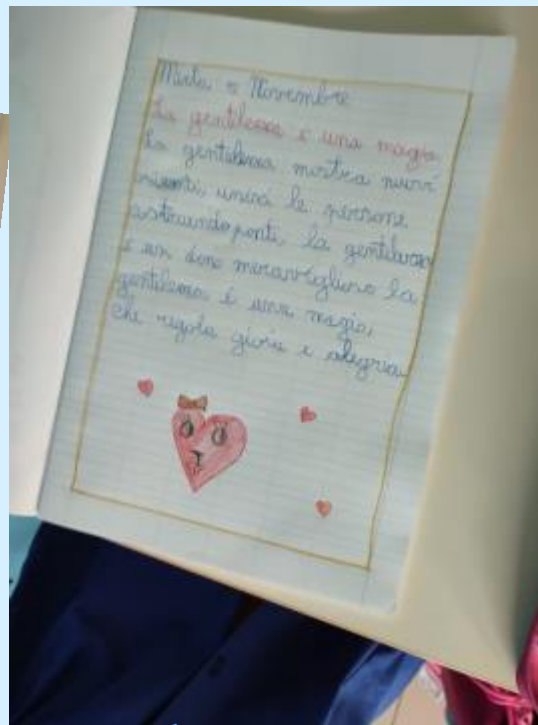 Novembre
La gentilezza è una magia
La gentilezza mostra nuovi
unirà le persone
costruendo ponti, la gentilezza
è un dono meraviglioso la
gentilezza è una magia,
che regala gioia e alegria